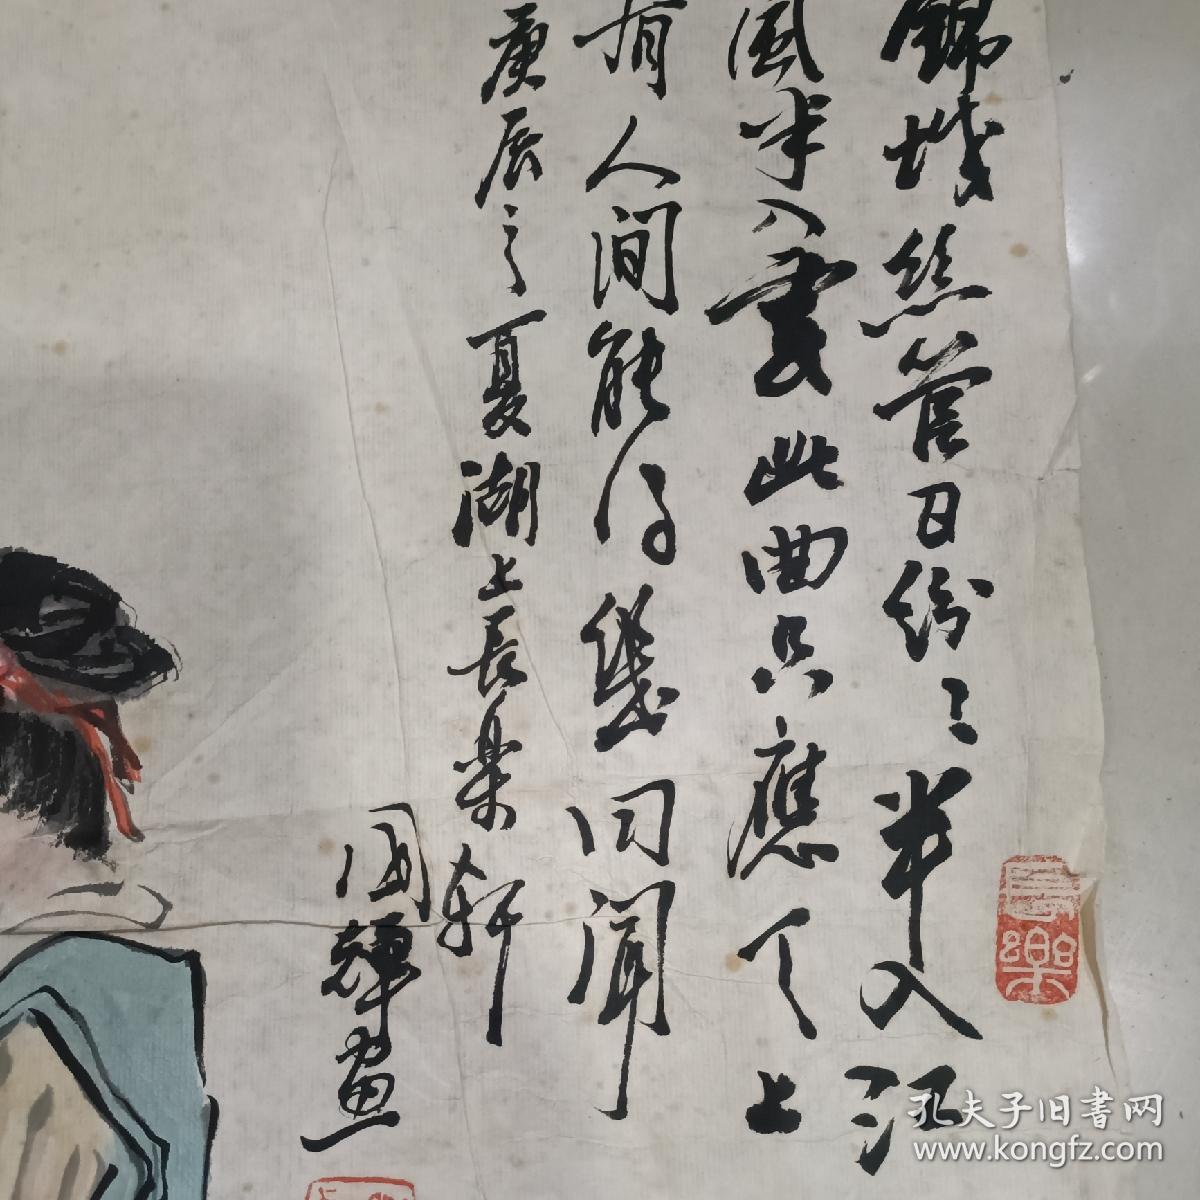 錦城丝管日纷〻半入江
風半入雲此曲只應天上
有人间能得幾回聞
庚辰之夏湖上長樂轩
国輝画
長樂
孔夫子旧書网
www.kongfz.com